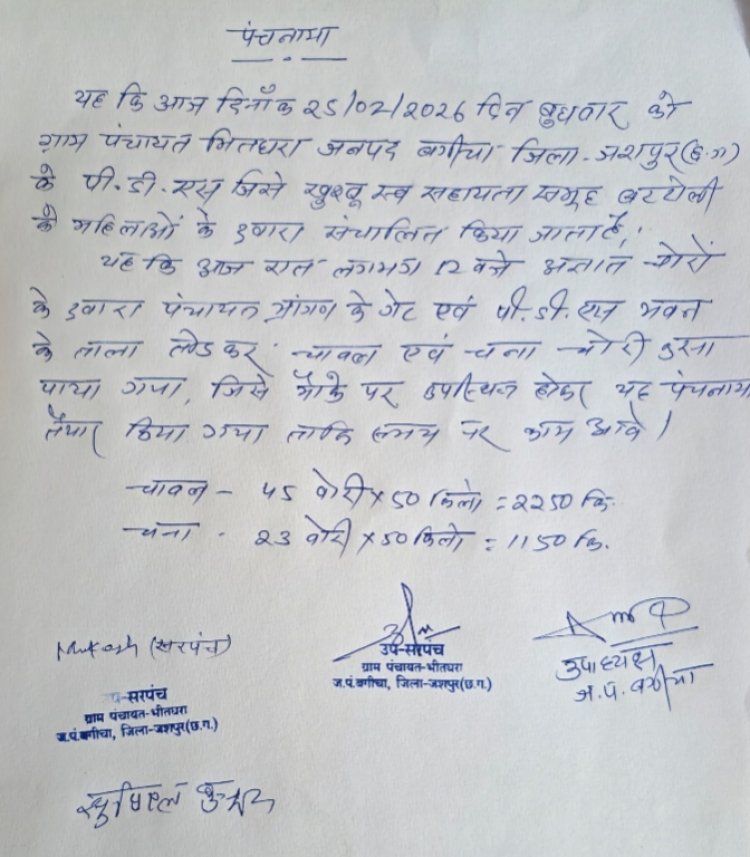 पंचनामा
यह कि आज दिनाँक 25/02/2026 दिन बुधवार को
ग्राम पंचायत भितघरा जनपद बगीचा जिला-जशपुर(छ.ग)
के पी.डी.एस जिसे खुशबू स्व सहायता समूह
के महिलाओं के द्वारा संचालित किया जाता है,
यह कि आज रात लगभग 12 बजे अज्ञात चोरों
के द्वारा पंचायत प्रांगण के गेट एवं पी.डी.एस भवन
के ताला तोड़कर चावल एवं चना चोरी हुआ
पाया गया, जिसे मौके पर उपस्थित होकर यह पंचनामा
तैयार किया गया ताकि समय पर काम आवे।
चावल - 45 बोरी × 50 किलो = 2250 कि.
चना - 23 बोरी × 50 किलो = 1150 कि.
Mukesh (सरपंच)
उप-सरपंच
ग्राम पंचायत-भीतघरा
ज.पं.बगीचा, जिला-जशपुर(छ.ग.)
उपाध्यक्ष
ज.पं. बगीचा
-सरपंच
ग्राम पंचायत-भीतघरा
ज.पं.बगीचा, जिला-जशपुर(छ.ग.)